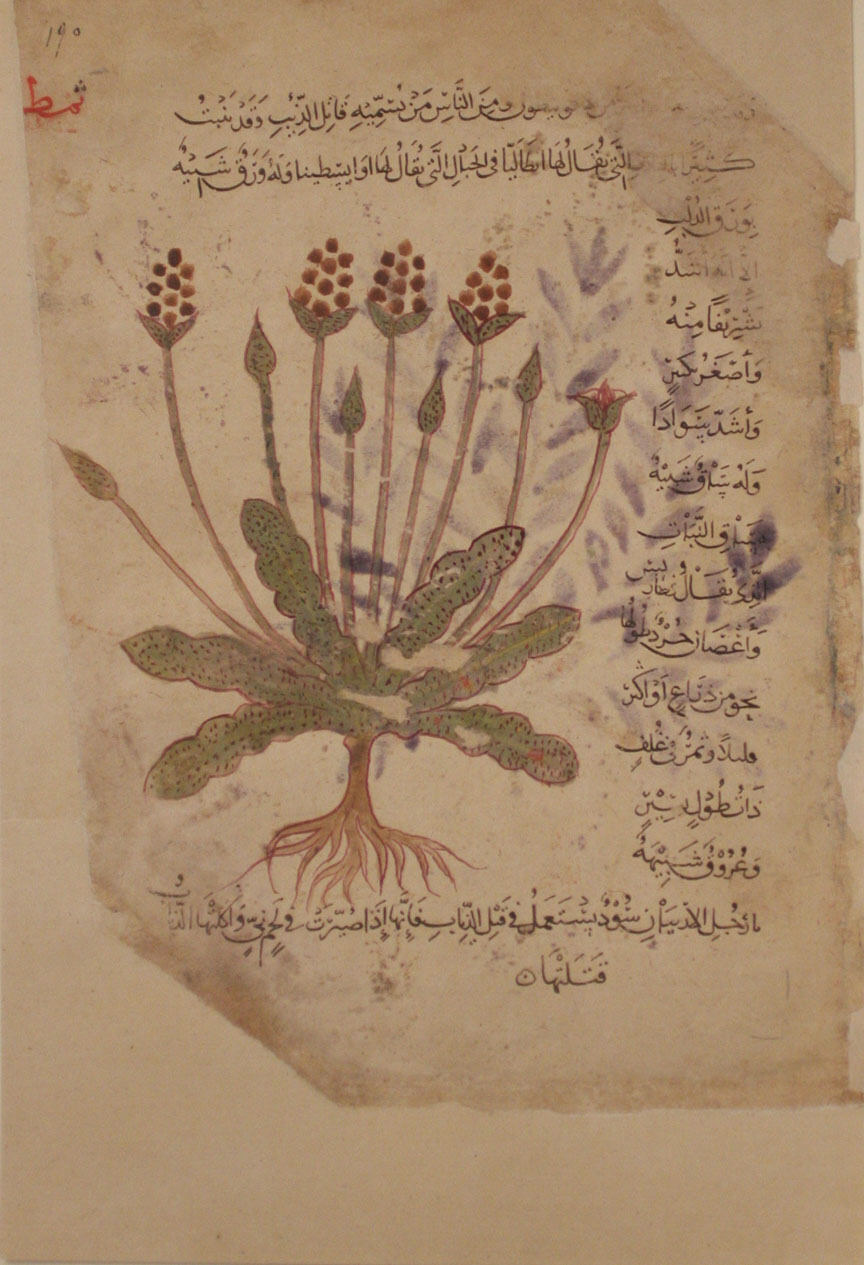 ١٩٠
ومن الناس من يسميه قاتل الذئب وقد ينبت
كثيرا التي يقال لها ايطاليا في الجبال التي يقال لها اوايسطينا وله ورق شبيه
بورق الدلب
الا انه اشد
تشريفا منه
وأصغر بكثير
وأشد سوادا
وله ساق شبيه
بساق النبات
الذي يقال له
وأغصان جرد طولها
نحو من ذراع أو اكثر
قليلا وثمر في غلف
ذات طول يسير
وعروق شبيهة
بأرجل الاربيان سود يستعمل في قتل الذياب فإنها إذا صيرت في لحم ني وأكلتها الذياب
قتلتها